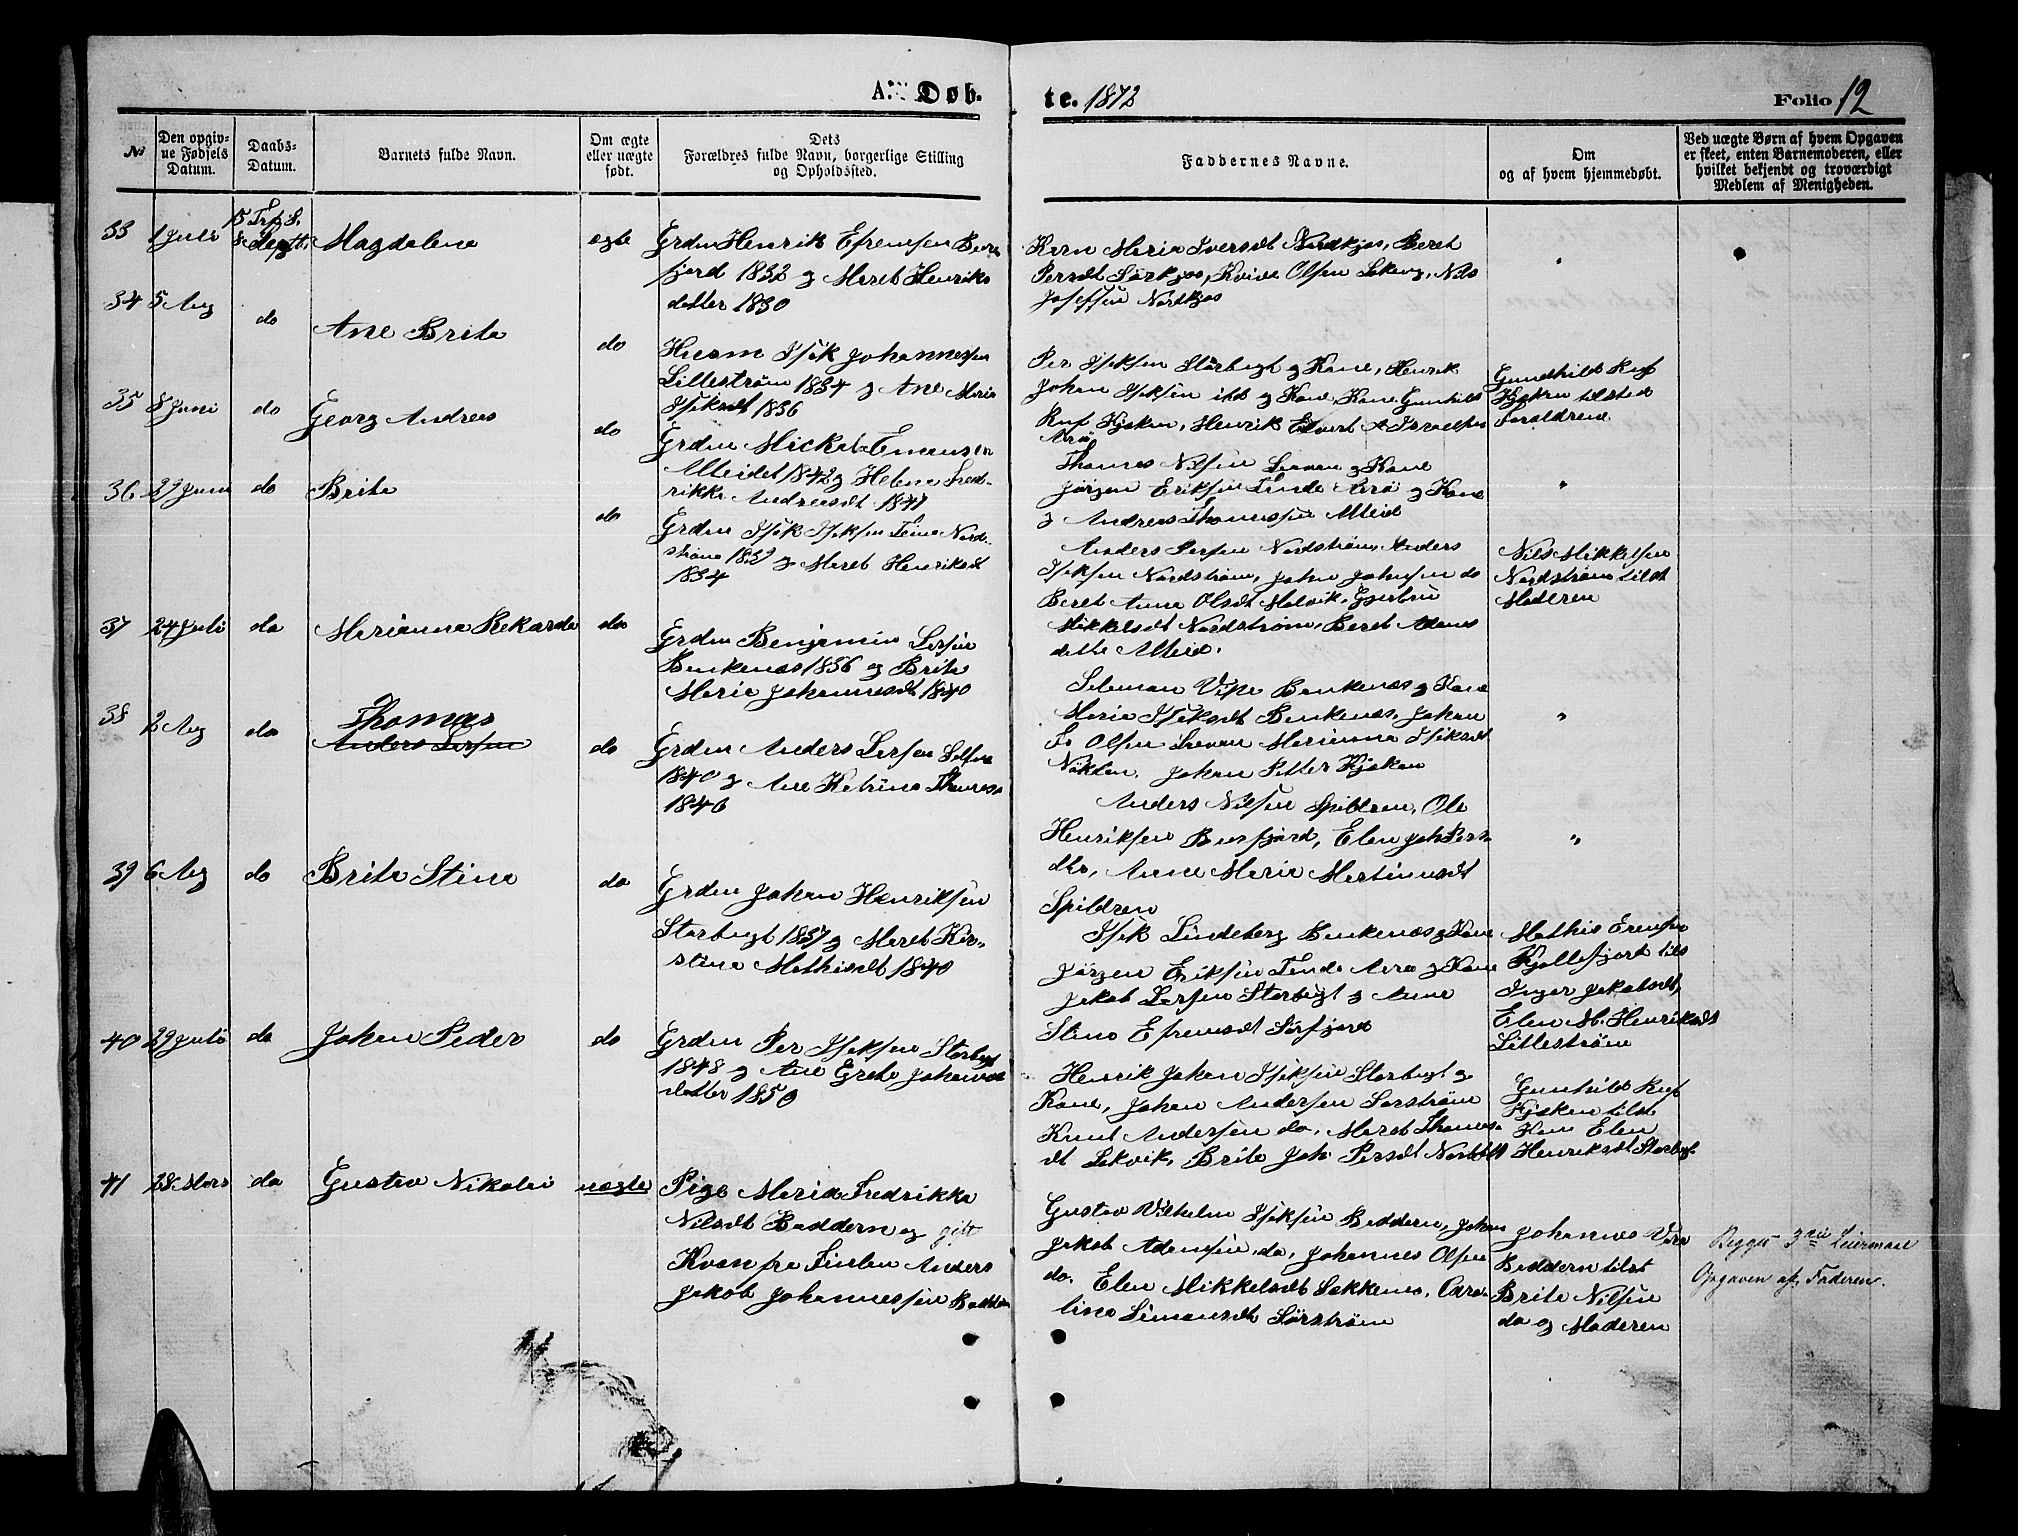 A. Døb.
te. 1872
Folio 12
No
Den opgiv-
ne Fødsels
Datum.
Daabs-
Datum.
Barnets fulde Navn.
Om ægte
eller uægte
født.
Dets
Forældres fulde Navn, borgerlige Stilling
og Opholdssted.
Faddernes Navne.
Om
og af hvem hjemmedøbt.
Ved uægte Børn af hvem Opgaven
er skeet, enten Barnemoderen, eller
hvilket bekjendt og troværdigt
Medlem af Menigheden.
33 1 Juli
15 Trf S.
8 Septb
Magdalena
ægte
Grdm Henrik Efremsen Burs
fjord 1832 og Meret Henriks
datter 1830
Karn Maria Iversdt Nordkjos, Beret
Persdt Sørkjos, Olsen Lokeng, Nils
Josefsen Nordkjos
34 5 Aug
do
Ane Brita
do
Husm Isak Johannessen
Lillestrøm 1834 og Ane Maria
Isaksdt 1836
Per Isaksen Storbugt og Kone, Henrik
Johan Isaksen ibd og Kone, Kone Gunhild
Ruf Kjøken, Henrik Israelsen
Arø
Gundhild Ruf
Kjøken tilsted
Foreldrene
35 8 Juni
do
Georg Andreas
do
Grdm Mickal Emansen
Alteidet 1842 og Helena Fred-
rikke Andreasdt 1847
Thomas Nilsen Leevan og Kone
Jørgen Eriksen Tende Arø og Kone
og Andreas Thomassen Alteid
36 29 Juni
do
Brita
do
Grdm Isak Isaksen Teine Nord-
strøm 1832 og Meret Henriksdt
1834
Anders Persen Nordstrøm, Anders
Isaksen Nordstrøm, John Johnsen do
Beret Anna Olsdt Malvik, Gjertru
Mikkelsdt Nordstrøm, Beret Adams
datter Alteid.
Nils Mikkelsen
Nordstrøm tilst
Moderen
37 24 Juli
do
Marianna Rekarda
do
Grdm Benjamin Larsen
Bankenæs 1836 og Brita
Maria Johannesdt 1840
Salamon Vipe Bankenæs og Kone
Maria Isaksdt Bankenæs, Johan
Fr Olsen Leevan Marianna Isaksdt
Nökten. Johan Petter Kjøken
38 2 Aug
do
Thomas
Anders Larsen
do
Grdm Anders Larsen
1840 og Ane Katrina Thomasd
1846
Anders Nilsen Spildren, Ole
Henriksen Bursfjord, Elen Joh Pers-
dtr, Anne Maria Martinusdt
Spildren
39 6 Aug
do
Brita Stina
do
Grdm Johan Henriksen
Storbugt 1837 og Meret Kir-
stina Mathisdt 1840
Isak Lindeberg Bankenæs og Kone
Jørgen Eriksen Tende Arø og Kone
Jakob Larsen Storbugt og Anne
Stina Efremsdt Sørfjord
Mathis Evensen
Kjollefjord tilst
Inger Jakobsdt,
Elen M. Henriksdt
Lillestrøm
40 29 Juli
do
Johan Peder
do
Grdm Per Isaksen Storbugt
1848 og Ane Greta Johannes
datter 1850
Henrik Johan Isaksen Storbugt og
Kone, Johan Andersen Sørstrøm
Knut Andersen do, Meret Thomas-
dt Lakvik, Brita Joh Persdt
Gunhild Ruf
Kjøken tilst
Kone Elen
Henriksdt Storbugt
41 28 Mars
do
Gustav Nikolai
uægte
Pige Maria Fredrikka
Nilsdt Baddern og gift
Kvæn fra Finlan Anders
Jakob Johannessen Baddern
Gustav Vilhelm Isaksen Baddern, Johan
Jakob Adamsen, do, Johannes Olsen
do. Elen Mikkelsdt Lakkenes, Caro-
lina Simonsdt Sørstrøm
Johannes Vara
Baddern tilst
Brita Nilsen
do og Moderen
Begges 3die Leiermaal
Opgaven af Faderen.